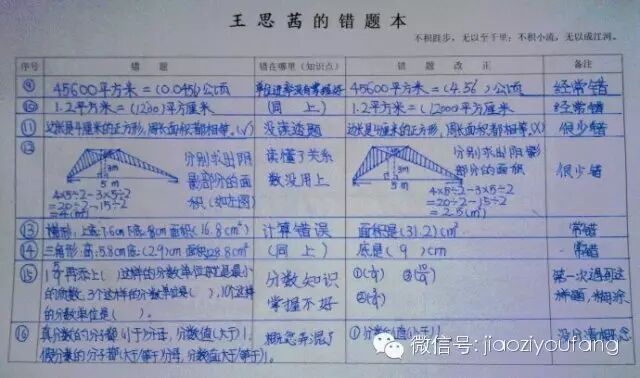 王思茜的错题本
不积跬步，无以至千里；不积小流，无以成江河。
序号 错 题 错在哪里（知识点） 错 题 改 正 备注
⑨ 45600平方米=(0.0456)公顷 45600平方米=(4.56)公顷 经常错
⑩ 1.2平方米=(1200)平方厘米 （同上） 1.2平方米=(12000)平方厘米 经常错
⑪ 边长是4厘米的正方形，周长面积都相等。(√) 没读透题 边长是4厘米的正方形，周长面积都相等。(×) 很少错
⑫ 分别求出阴影部分的面积（如左图） 读懂了关系数没用上 分别求出阴影部分的面积 很少错
3m
5m
4×5÷2-3×5÷2
=20÷2-15÷2
3m
5m
4×5÷2-3×5÷2
=20÷2-15÷2
=2.5(m²)
⑬ 梯形，上底:7.6cm下底:8cm面积(16.8cm²) 计算错误 面积是(31.2)cm² 常错
⑭ 三角形：高:5.8cm底:(2.9)cm （同上） 底是(9)cm 常错
⑮ 再添上( )这样的分数单位就是最小的质数，3个这样的分数单位是( )，10个这样的分数单位是( )。 分数知识掌握不好 第一次遇到这
⑯ 真分数的分子都(小于)分母，分数值(大于)1； 概念弄混了 没分清概念
假分数的分子都(大于/等于)分母，分数值(大于/等于)1。
微信号: jiaoziyoufang